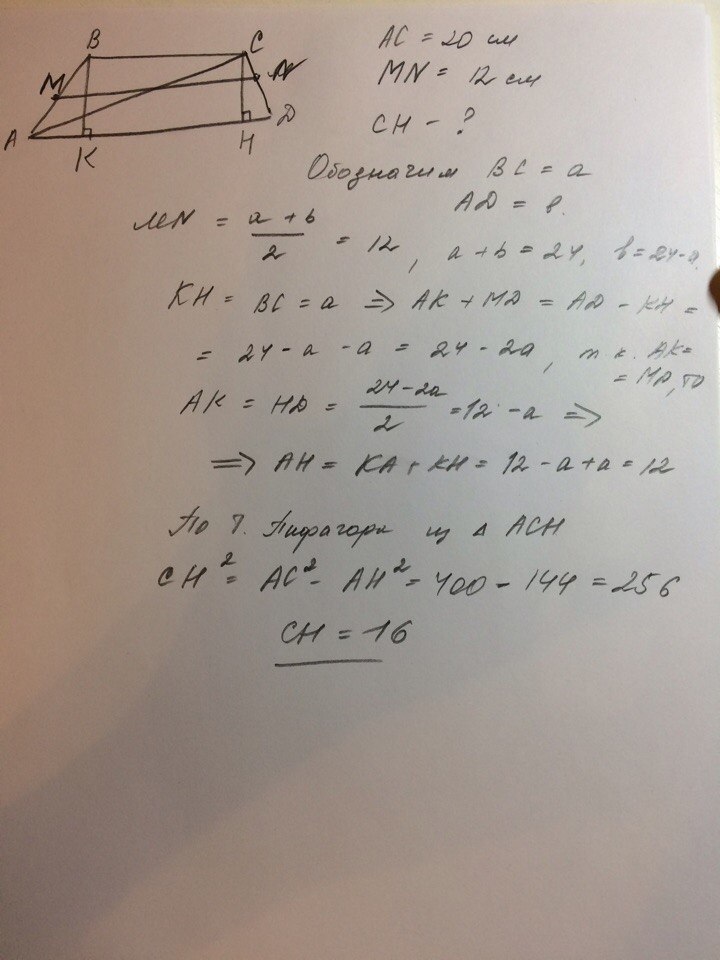 B C
M N
A K H D
AC = 20 см
MN = 12 см
CH - ?
Обозначим BC = a
AD = в.
MN = a + b / 2 = 12, a + b = 24, в = 24-a,
KH = BC = a ⇒ AK + MD = AD - KH =
= 24 - a - a = 24 - 2a, т к. AK=
= MD, то
AK = HD = 24-2a / 2 = 12 - a ⇒
⇒ AH = KA + KH = 12 - a + a = 12
По Т. Пифагора из Δ ACH
CH² = AC² - AH² = 400 - 144 = 256
CH = 16